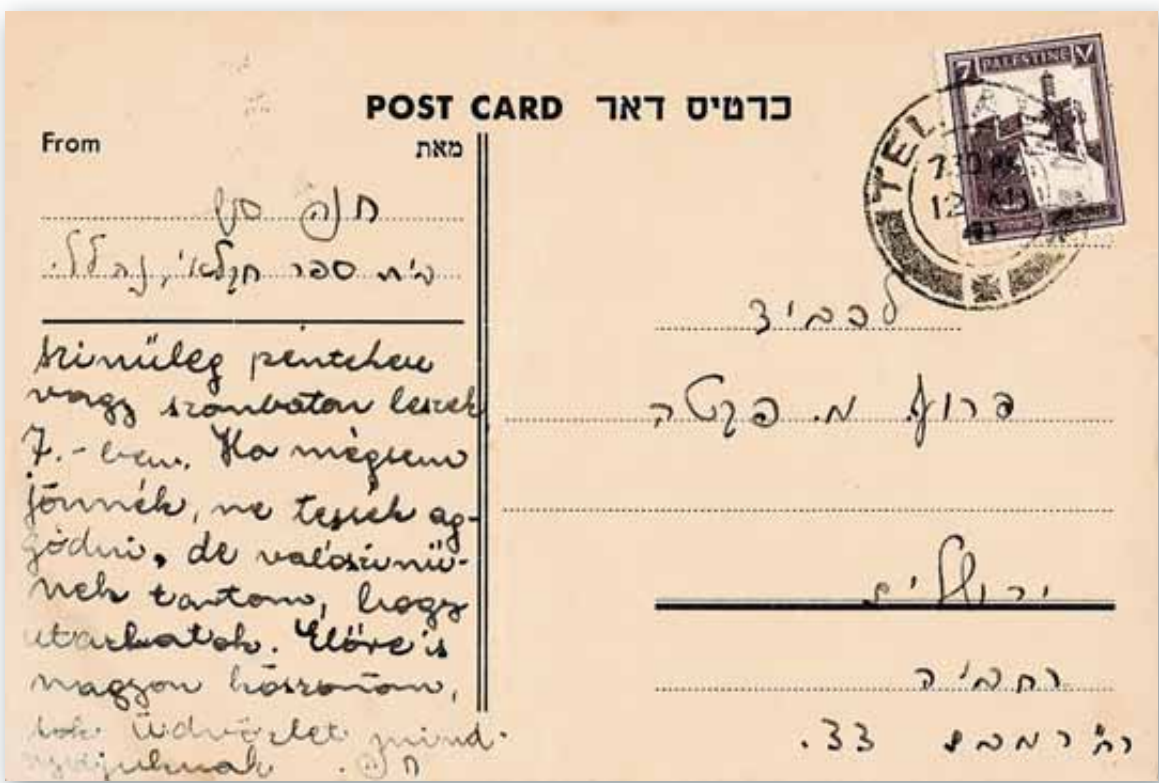 POST CARD כרטיס דאר
From מאת
חנה סנש
בית ספר חקלאי, נהלל.
szinűleg pénteken
vagy szombaton leszek
J.-ben. Ha mégsem
jönnék, ne tessék ag-
gódni, de valószinű-
nek tartom, hogy
utazhatok. Előre is
nagyon köszönöm,
sok üdvözlet mind-
nyájuknak חנה.
7 PALESTINE ٧
TEL
7 30 PM
12
לכביד
פרופ. מ. פקטה
ירושלים
רחביה
רח' רמב"ן 33.